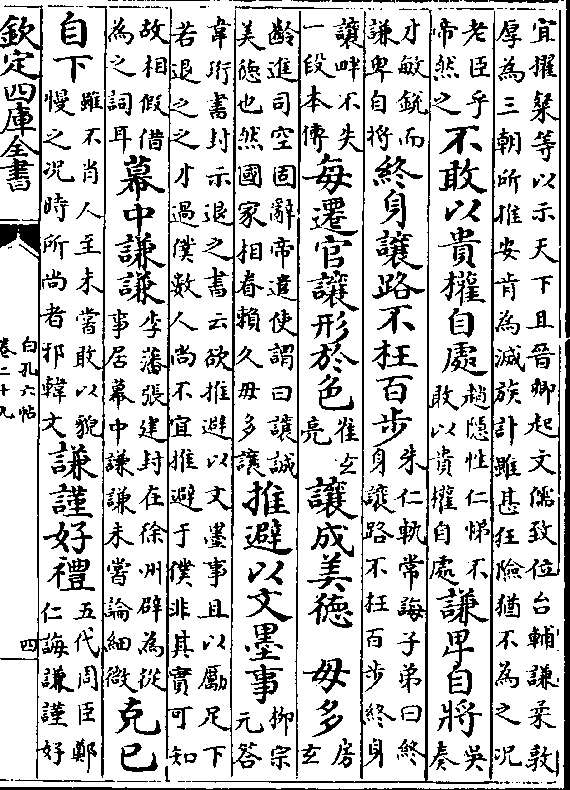 宜擢粲等以示天下且晉卿起文儒致位台輔謙柔敦
厚為三朝所推安肯為滅族計雖甚狂險猶不為之况
老臣乎帝然之不敢以貴權自處趙隱性仁悌不敢以貴權自處謙卑自將吳奏
才敏銳而謙卑自將終身讓路不枉百步朱仁軌常誨子弟曰終身讓路不枉百步終身
讓畔不失一段本傳每遷官讓形於色崔玄亮讓成美德毋多房玄
齡進司空固辭帝遣使謂曰讓誠美德也然國家相眷賴久毋多讓推避以文墨事柳宗元答
韋珩書封示退之書云欲推避以文墨事且以勵足下
若退之之才過僕數人尚不宜推避于僕非其實可知
故相假借為之詞耳幕中謙謙李藩張建封在徐州辟為從事居幕中謙謙未嘗論細微克已
自下雖不肖人至未嘗敢以貌慢之况時所尚者邪韓文謙謹好禮五代周臣鄭仁誨謙謹好
欽定四庫全書
白孔六帖
卷二十九
四